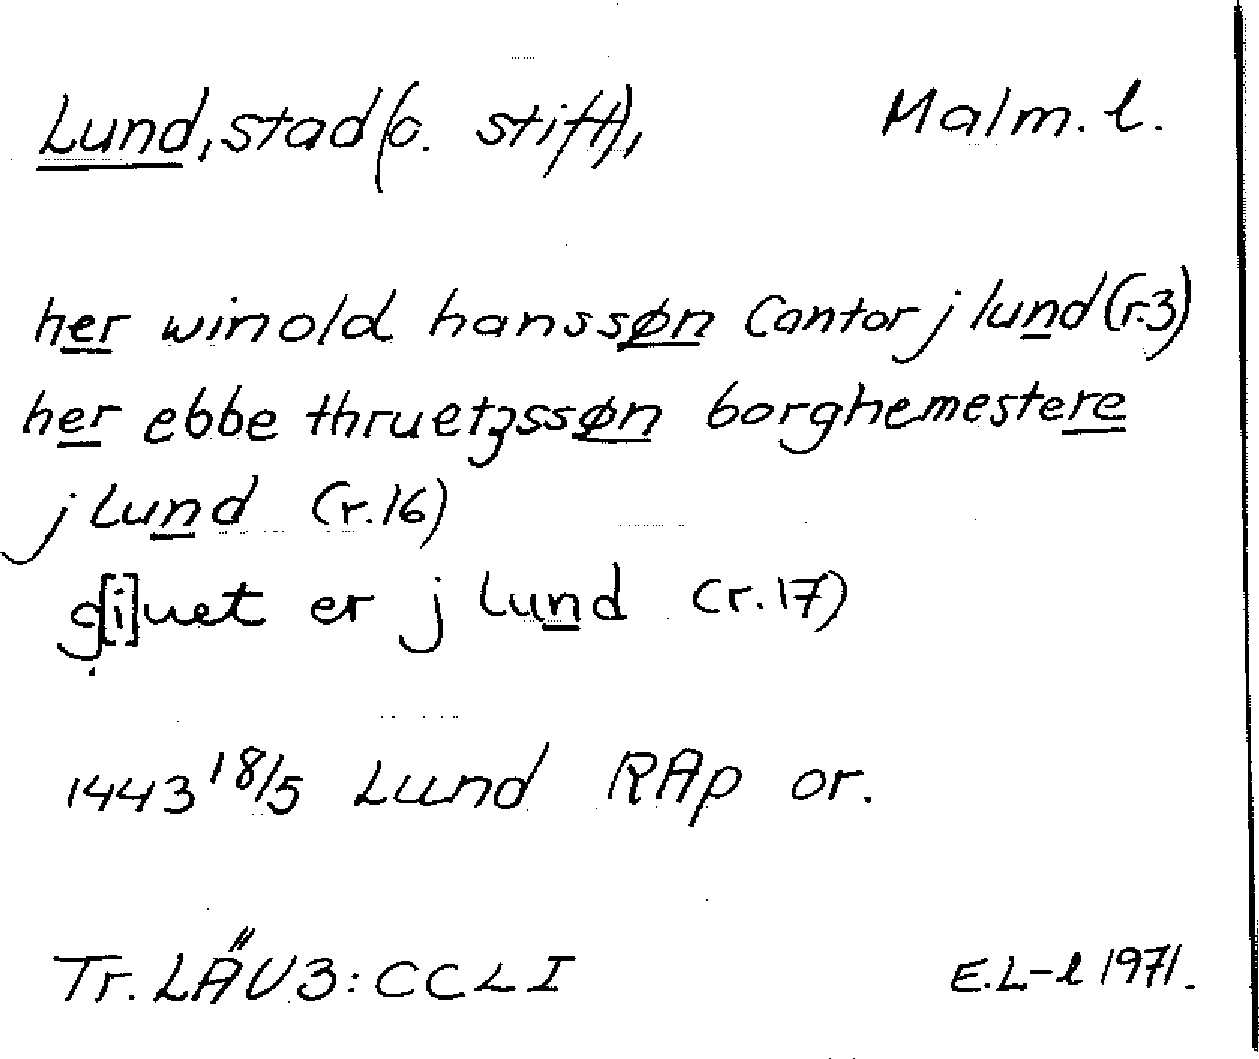 Lund, stad (o. stift), Malm. l.
her winold hanssøn Cantor j lund (r.3)
her ebbe thruetzssøn borghemestere
j Lund (r.16)
g[i]uet er j Lund (r.17)
1443 18/5 Lund RAp or.
Tr. LÄU 3: CCLI E.L-l 1971.